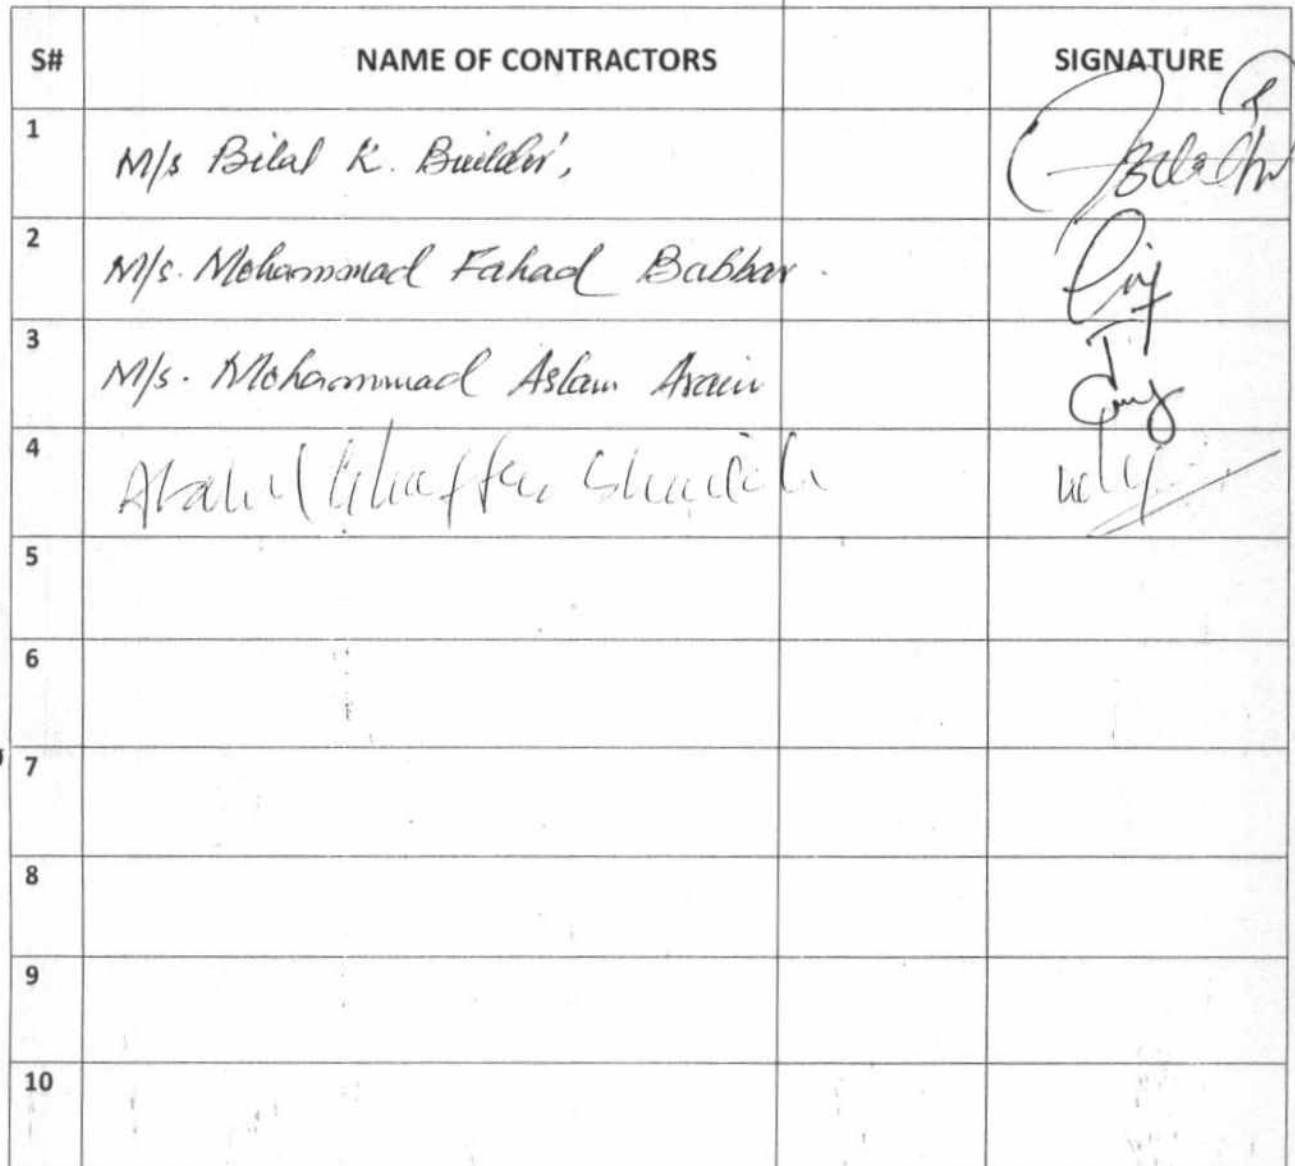 S# NAME OF CONTRACTORS SIGNATURE
1 M/s Bilal K. Builder's
2 M/s. Mohammad Fahad Babbar.
3 M/s. Mohammad Aslam Arain
4 Abdul Ghaffar Shaikh
5
6
7
8
9
10